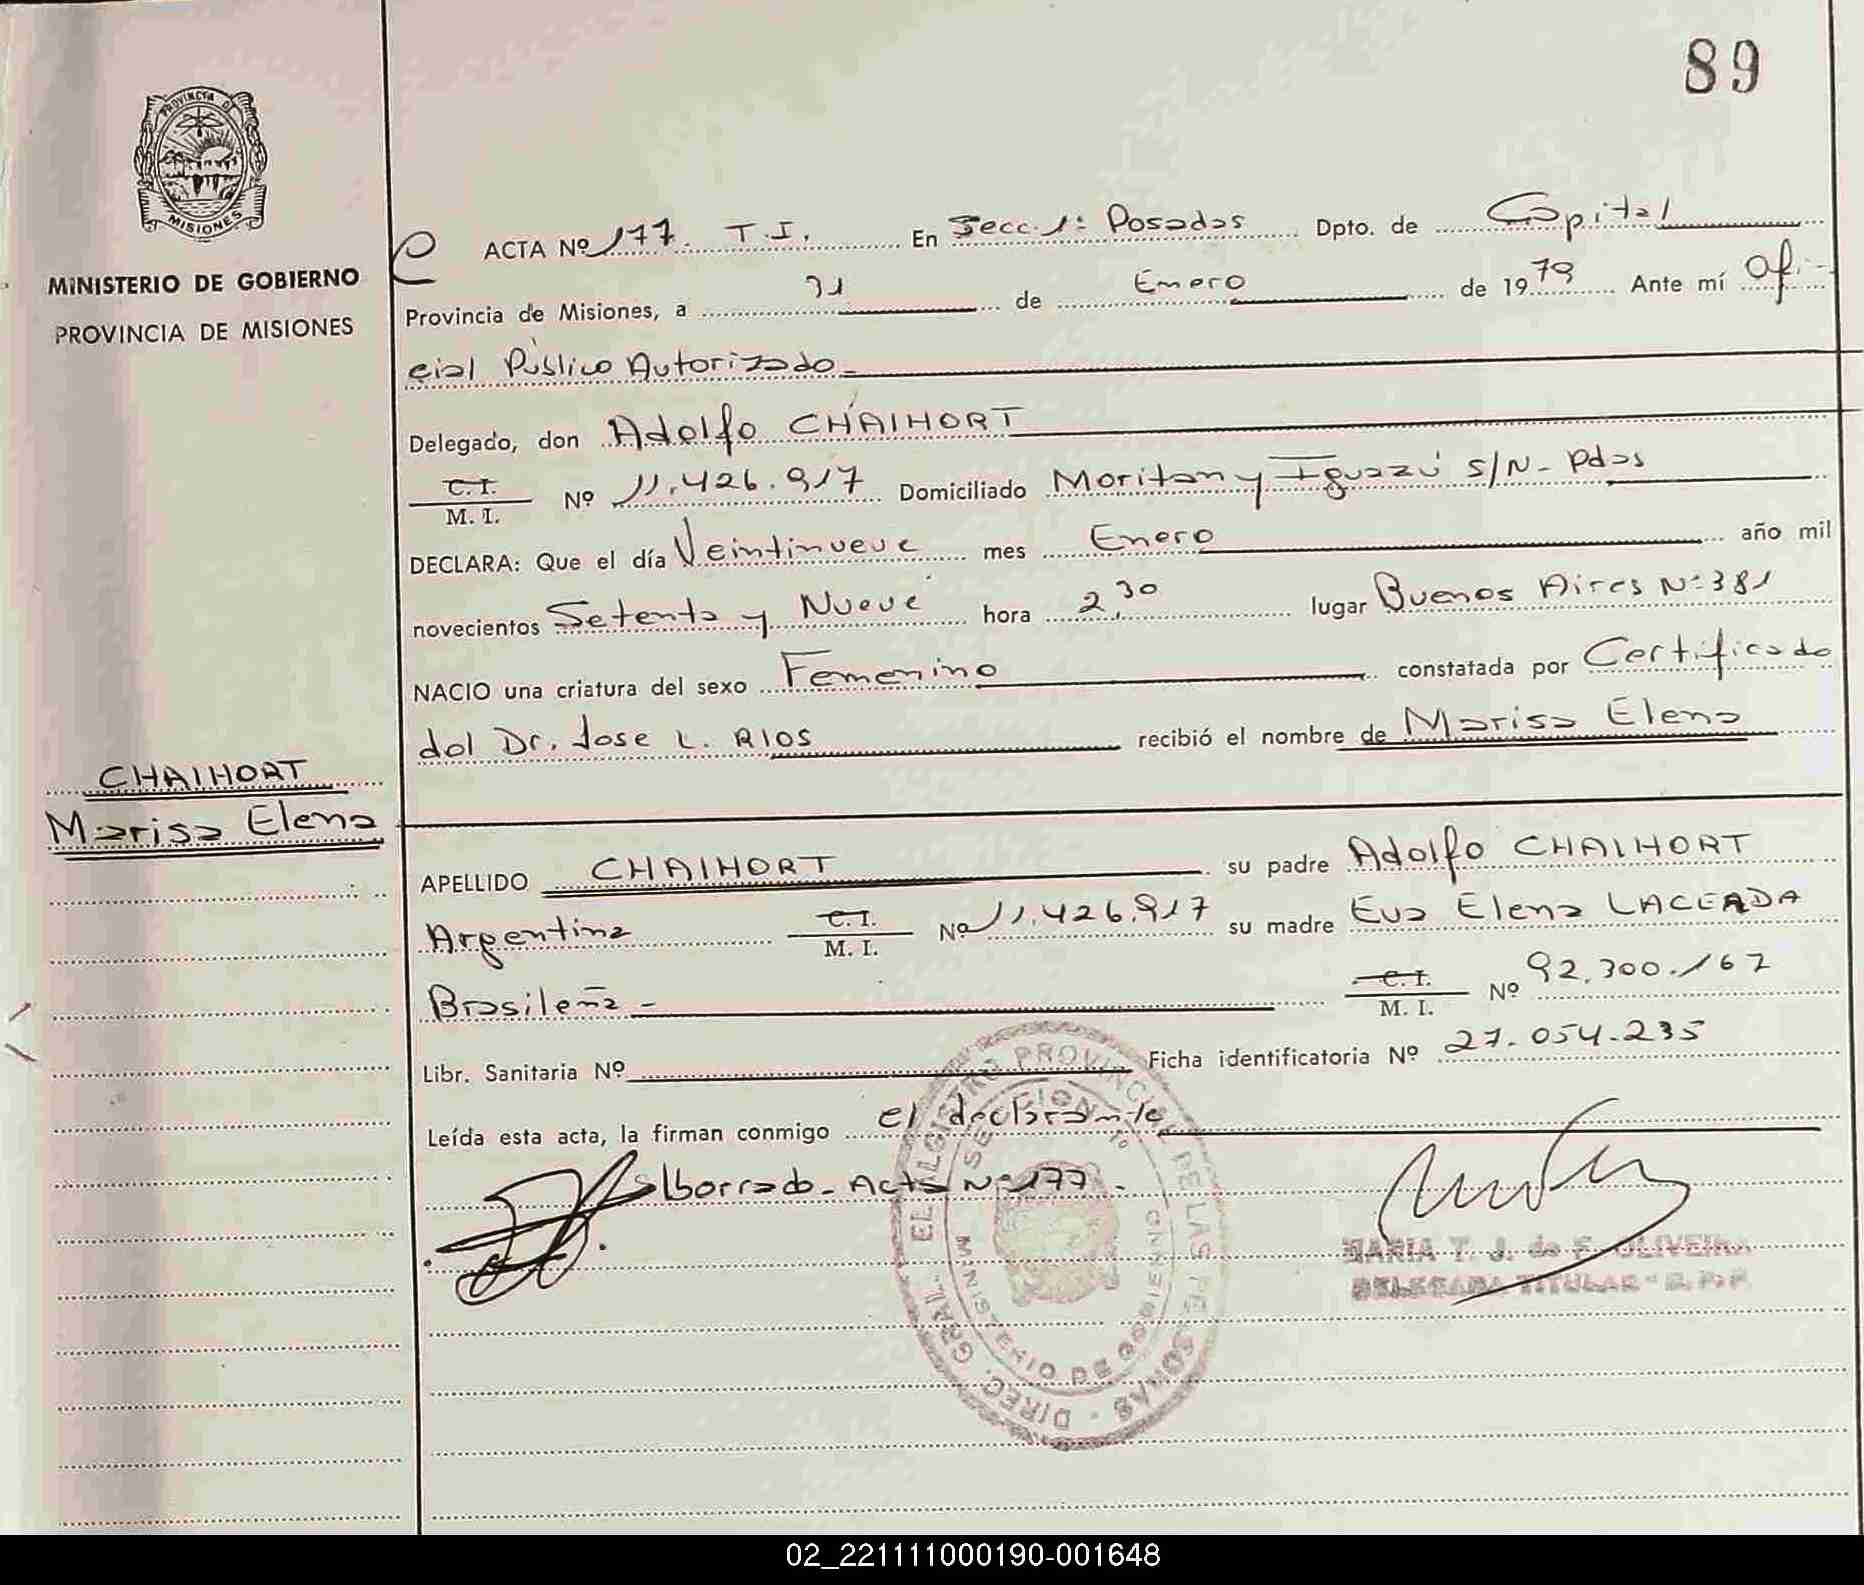 89
PROVINCIA DE
MISIONES
MINISTERIO DE GOBIERNO
PROVINCIA DE MISIONES
ACTA Nº 177. T.I. En Secc. 1ª Posadas Dpto. de Capital
Provincia de Misiones, a 31 de Enero de 1979 Ante mí Ofi-
cial Público Autorizado
Delegado, don Adolfo CHAIHORT
C. I.
M. I. Nº 11.426.917 Domiciliado Moritan y Iguazú S/N - Pdas
DECLARA: Que el día Veintinueve mes Enero año mil
novecientos Setenta y Nueve hora 2,30 lugar Buenos Aires Nº 381
NACIO una criatura del sexo Femenino constatada por Certificado
del Dr. Jose L. RIOS recibió el nombre de Marisa Elena
CHAIHORT
Marisa Elena
APELLIDO CHAIHORT su padre Adolfo CHAIHORT
Argentina C. I. M. I. Nº 11.426.917 su madre Eva Elena LACERDA
Brasileña - C. I. M. I. Nº 92.300.167
Libr. Sanitaria Nº Ficha identificatoria Nº 27.054.235
Leída esta acta, la firman conmigo el declarante
s/borrado - Acta Nº 177 -
DIREC. GRAL. EL REGISTRO PROVINCIAL DE LAS PERSONAS
SECCION 1º
MINISTERIO DE GOBIERNO
MARIA T. J. de F. OLIVEIRA
DELEGADA TITULAR - R. P. P.
02_221111000190-001648